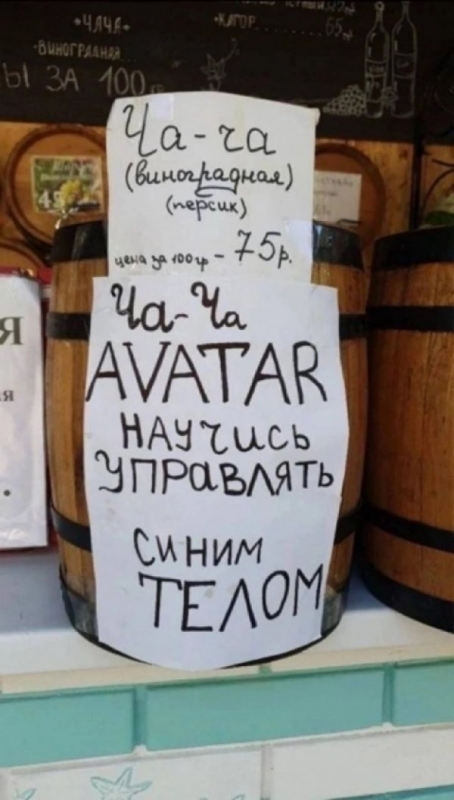 •ЧАЧА•
-ВИНОГРАДНАЯ
•КАГОР
65
Ы ЗА 100
Ча-ча
(виноградная)
(персик)
цена за 100гр - 75р.
Ча-Ча
AVATAR
НАУЧИСЬ
УПРАВЛЯТЬ
СИНИМ
ТЕЛОМ
Я
я